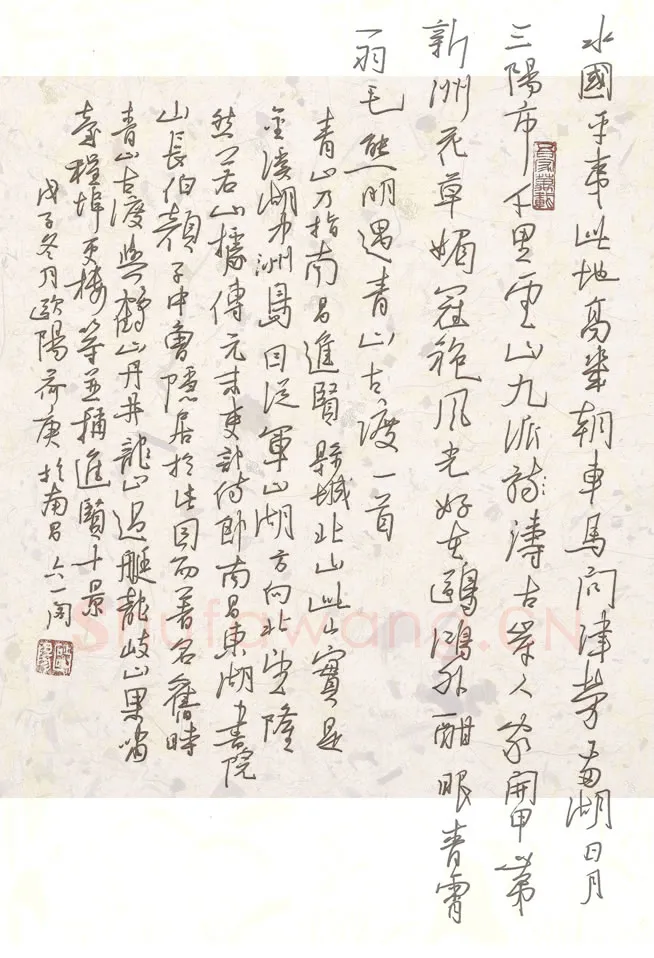 水國平夷此地高幾朝車馬問津勞番湖日月
三陽市千里雲山九派詩濤古岸人家開甲第
新洲花草媚冠袍風光好在鷗鴻外酣眼青霄
一羽毛熊明遇青山古渡一首
青山乃指南昌進賢縣城北山此山實是
金溪湖中洲島自從軍山湖方向北望隆
然若山據傳元末吏部侍郎南昌東湖書院
山長伯顏子中曾隱居於此因而著名舊時
青山古渡與鶴山丹井龍山過艇龍岐山果嘴
程埠更樓等並稱進賢十景
戊子冬月歐陽荷庚於南昌六一閣
Shufawang.CN